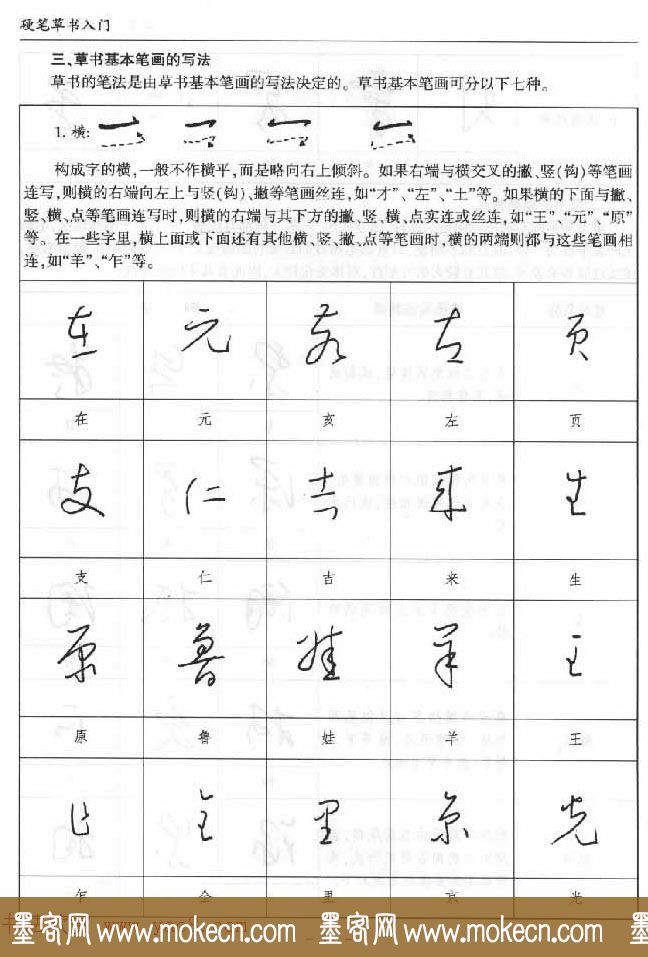 硬笔草书入门
三、草书基本笔画的写法
草书的笔法是由草书基本笔画的写法决定的。草书基本笔画可分以下七种。
1. 横:
构成字的横,一般不作横平,而是略向右上倾斜。如果右端与横交叉的撇、竖(钩)等笔画
连写,则横的右端向左上与竖(钩)、撇等笔画丝连,如“才”、“左”、“土”等。如果横的下面与撇、
竖、横、点等笔画连写时,则横的右端与其下方的撇、竖、横、点实连或丝连,如“王”、“元”、“原”
等。在一些字里,横上面或下面还有其他横、竖、撇、点等笔画时,横的两端则都与这些笔画相
连,如“羊”、“乍”等。
在 元 亥 左 页
在 元 亥 左 页
支 仁 吉 来 生
支 仁 吉 来 生
原 鲁 娃 羊 王
原 鲁 娃 羊 王
乍 全 里 京 光
乍 全 里 京 光
墨客网 www.mokecn.com 墨客网 www.mokecn.com